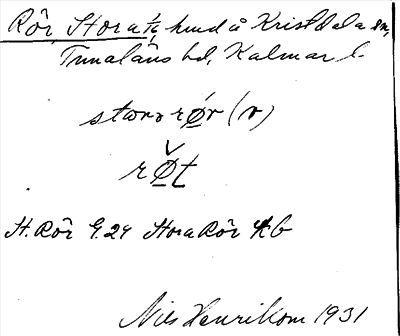 Rör Stora ½ hmd i Kristdala sn,
Tunaläns hd, Kalmar l.
storø rør (r)
røt
St. Rör G.24 Stora Rör Kb
Nils Henrikson 1931